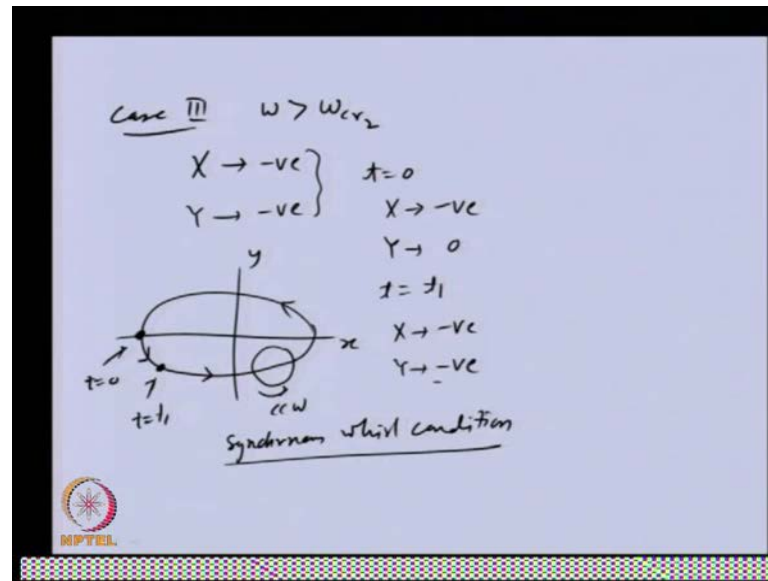 Case III ω > ωcr₂
X → -ve
Y → -ve
t = 0
X → -ve
Y → 0
t = t₁
X → -ve
Y → -ve
y
x
t=0
t=t₁
ccw
Synchronous whirl condition
NPTEL